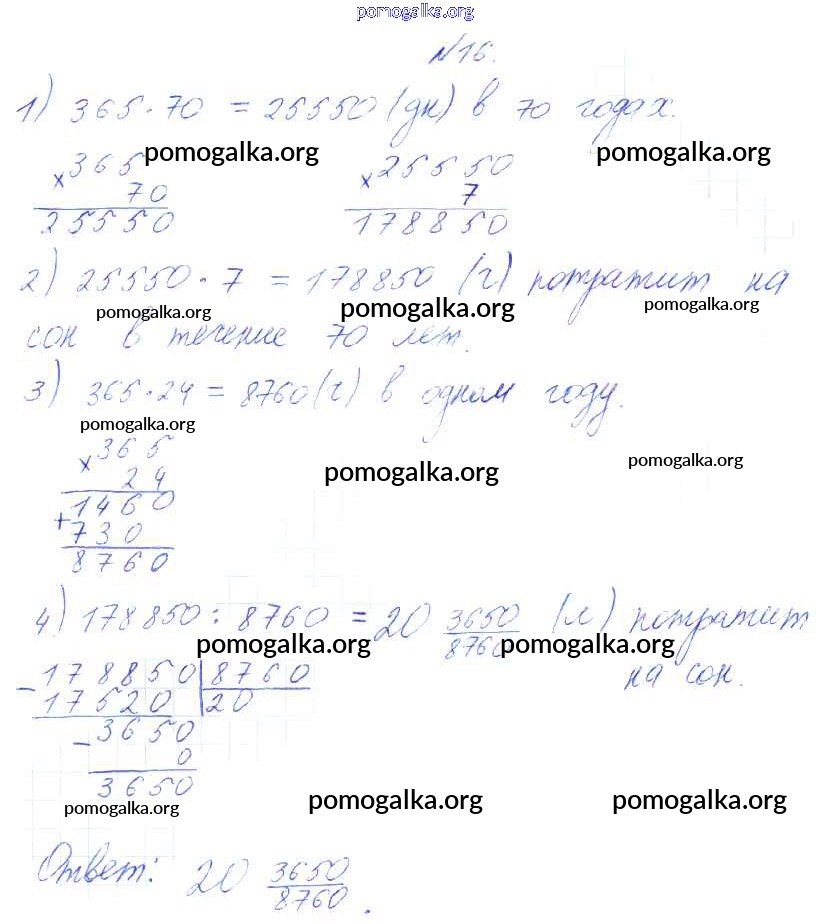 pomogalka.org
№16.
1) 365·70 = 25550 (дн) в 70 годах.
pomogalka.org pomogalka.org
×365 ×25550
70 7
25550 178850
2) 25550·7 = 178850 (ч) потратит на
pomogalka.org pomogalka.org pomogalka.org
сон в течение 70 лет.
3) 365·24 = 8760 (ч) в одном году.
pomogalka.org
×365
pomogalka.org pomogalka.org
24
1460
+730
8760
4) 178850 : 8760 = 20 3650/8760 (л) потратит
pomogalka.org pomogalka.org
на сон.
-178850|8760
17520 |20
-3650
0
3650
pomogalka.org pomogalka.org pomogalka.org
Ответ: 20 3650/8760.